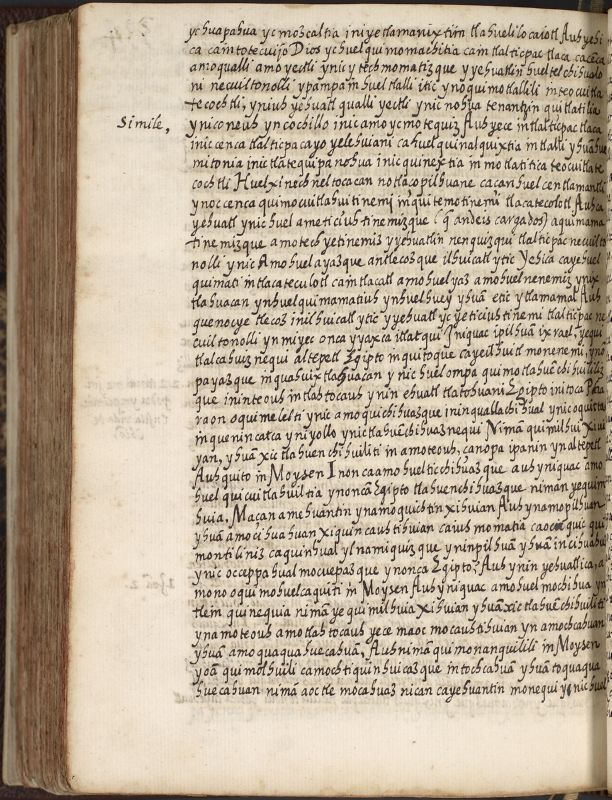 ychuapahua yc mozcaltia in iyetlamanixtin tlahuelilocaiotl Auh yehi
ca ca in totecuiyo Dios yc huel quimomachitia ca in tlalticpac tlaca cacenca
amo qualli amo yectli ynic ytech momatizque yyehuatl in huel tel chihualo
ni necuiltonolli ypampa in huel tlalli itic ynoquimotlalili in teocuitla
tecochtli, yniuh yehuatl qualli yectli ynic nohua tenantzin quitlatilia
Simile,
ynic oneuh yn cochillo inic amo yc motequiz Auh yece in tlalticpac tlaca
inic cenca tlalticpacayo yelehuiani ca huel quinalquixtia in tlalli yhuā hue
mitonia inic tlatequipanohua inic quinextia in motlatitica teocuitlate
cochtli Huel xinechneltocacan notlaçopilhuane ca can huel centlamantli
ynoc cenca quimocuitlahuitinemi in quitemotinemi tlacatecolotl Auh ca
yehuatl ynic huel ameticiuhtinemizque (q̃ andeis cargados) aquimama
tinemizque amotech yetinemiz yyehuatl in nenquizqui tlalticpac necuilto
nolli ynic Amo huel ayazque antlecozque ilhuicatl ytic Yehica ca yehuel
quimati in tlacateculotl ca in tlacatl amo huel yaz amo huel nenemiz ynix
tlahuacan ynhuel quimamatiuh ynhuel huey yhuā etic ytlamamal Auh
quenocye tlecoz in ilhuicatl ytic yyehuatl yc yeticiuhtinemi tlalticpac ne
cuiltonolli yn miyec onca yyaxca itlatqui Iniquac ipilhuā ixrael, yequi
tlalcahuiznequi altepetl Egipto inquitoque cayeilhuitl monenemi, yno
payazque in quahuixtlahuacan ynic huel ompa quimotlahuēchihuililiz
que in inteouh in tlahtocauh ynin ehuatl tlahtohuani Egipto initoca Pha
raon oquimelelti ynic amo quichihuazque in inquallachihual ynic oquitta
in quenin catca yniyollo ynic tlahuēchihuaznequi Nimā quimilhui Xihui
yan, yhuā xictlahuenchihuiliti in amoteouh, can opa ipan in yn altepetl
Auh quito in Moysen I nonca amo hueltic chihuazque auh yniquac amo
huel quicuitlahuiltia ynoncā Egipto tlahuenchihuazque niman yequim
huia. Macan amehuantin ynamoquichtin xihuian Auh yn amopilhuan
yhuā amocihuahuan xiquincauhtihuian caiuh momatia caoc ic quic qui
montiliniz caquinhual ylnamiquizque yninpilhuā yhuā incihuahuā
ynic occeppa hualmocuepazque ynonca Egipto? Auh ynin yehuatl ica, a
mono oqui mohuelcaquiti in Moysen Auh yniquac amo huel mochihua yn
tlein quinequia nimā ye quimilhuia Xihuian yhuā xictlahuēchihuiliti
ynamoteouh amotlahtocauh yece maoc mocauhtihuian yn amochcahuan
yhuā amoquaquahuecahuā, Auh nimā quimonanquilili in Moysen
yoā quimolhuili ca mochtiquinhuicazque in tochcahuā yhuā toquaqua
huecahuan nimā aoctle mocahuaz nican cayehuantin monequi ynic huel